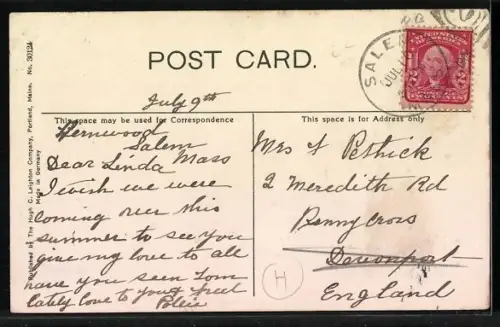 POST CARD.
This space may be used for Correspondence
This space is for Address only
Published by The Hugh C. Leighton Company, Portland, Maine. No. 30124
Made in Germany
SALEM
JUL
UNITED STATES
2
July 9th
Fernwood
Salem
Mass
Dear Linda
I wish we were
coming over this
summer to see you
give my love to all
have you seen Tom
lately love to your self
Mrs Pethick
2 Meredith Rd
Pennycross
Devonport
England
H